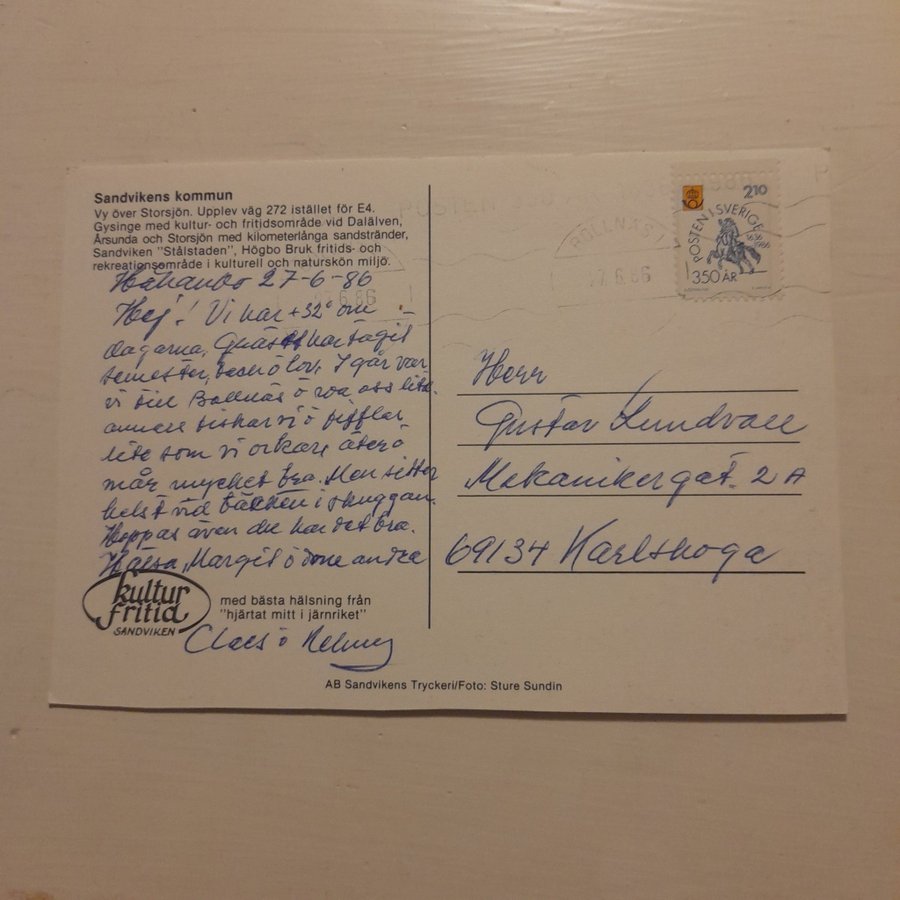 Sandvikens kommun
Vy över Storsjön. Upplev väg 272 istället för E4.
Gysinge med kultur- och fritidsområde vid Dalälven,
Årsunda och Storsjön med kilometerlånga sandstränder,
Sandviken "Stålstaden", Högbo Bruk fritids- och
rekreationsområde i kulturell och naturskön miljö.
27-6-86
Hej! Vi har +32° om
dagarna, har tagit
semester, I går var
vi till Bollnäs o oss lite.
annars fiskar vi o
lite som vi orkar, äter o
mår mycket bra. Men sitter
helst vid bäcken i skuggan.
Hoppas även du har det bra.
Hälsa, Margit o dom andra
kultur
fritid
SANDVIKEN
med bästa hälsning från
"hjärtat mitt i järnriket"
Claes o
AB Sandvikens Tryckeri/Foto: Sture Sundin
POSTEN
BOLLNÄS 1
27.6.86
210
POSTEN I SVERIGE
1636
1986
350 ÅR
Herr
Gustav Lundvall
Mekanikergat. 2A
69134 Karlskoga